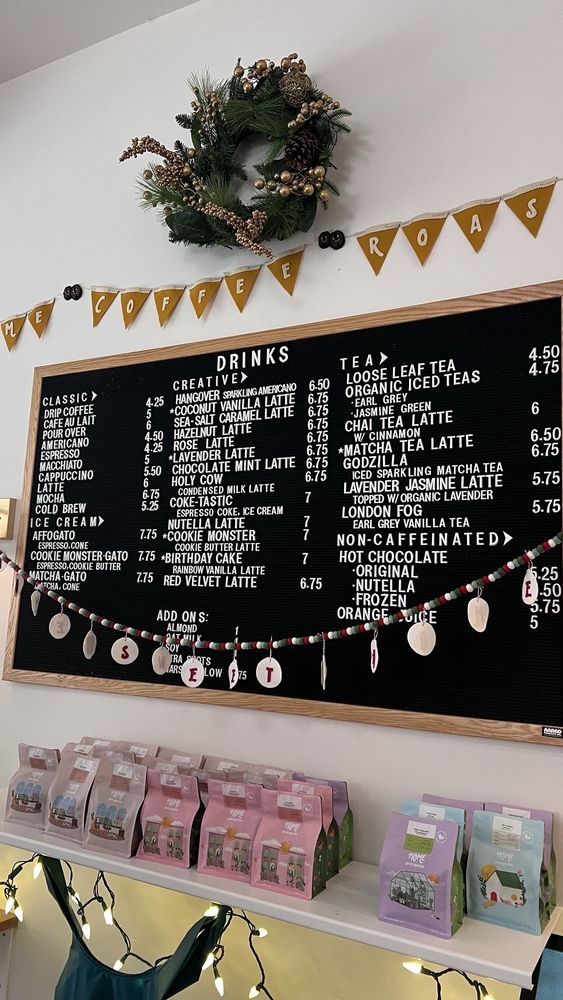 ME COFFEE ROAS
DRINKS
CLASSIC
DRIP COFFEE 4.25
CAFE AU LAIT 5
POUR OVER 6
AMERICANO 4.50
ESPRESSO 4.25
MACCHIATO 5
CAPPUCCINO 5.50
LATTE 6
MOCHA 6.75
COLD BREW 5.25
ICE CREAM
AFFOGATO 7.75
ESPRESSO.CONE
COOKIE MONSTER-GATO 7.75
ESPRESSO.COOKIE BUTTER
MATCHA-GATO 7.75
CONE
CREATIVE
HANGOVER SPARKLING AMERICANO 6.50
*COCONUT VANILLA LATTE 6.75
SEA-SALT CARAMEL LATTE 6.75
HAZELNUT LATTE 6.75
ROSE LATTE 6.75
*LAVENDER LATTE 6.75
CHOCOLATE MINT LATTE 6.75
HOLY COW 6.75
CONDENSED MILK LATTE
COKE-TASTIC 7
ESPRESSO COKE, ICE CREAM
NUTELLA LATTE 7
*COOKIE MONSTER 7
COOKIE BUTTER LATTE
*BIRTHDAY CAKE 7
RAINBOW VANILLA LATTE
RED VELVET LATTE 6.75
ADD ONS:
ALMOND
SOY
TEA
LOOSE LEAF TEA 4.50
ORGANIC ICED TEAS 4.75
·EARL GREY
·JASMINE GREEN
CHAI TEA LATTE 6
W/ CINNAMON
*MATCHA TEA LATTE 6.50
GODZILLA 6.75
ICED SPARKLING MATCHA TEA
LAVENDER JASMINE LATTE 5.75
TOPPED W/ORGANIC LAVENDER
LONDON FOG 5.75
EARL GREY VANILLA TEA
NON-CAFFEINATED
HOT CHOCOLATE
·ORIGINAL
·NUTELLA
·FROZEN 5.75
ORANGE JUICE 5
SWEET
HOME
HOME
HOME
HOME
HOME